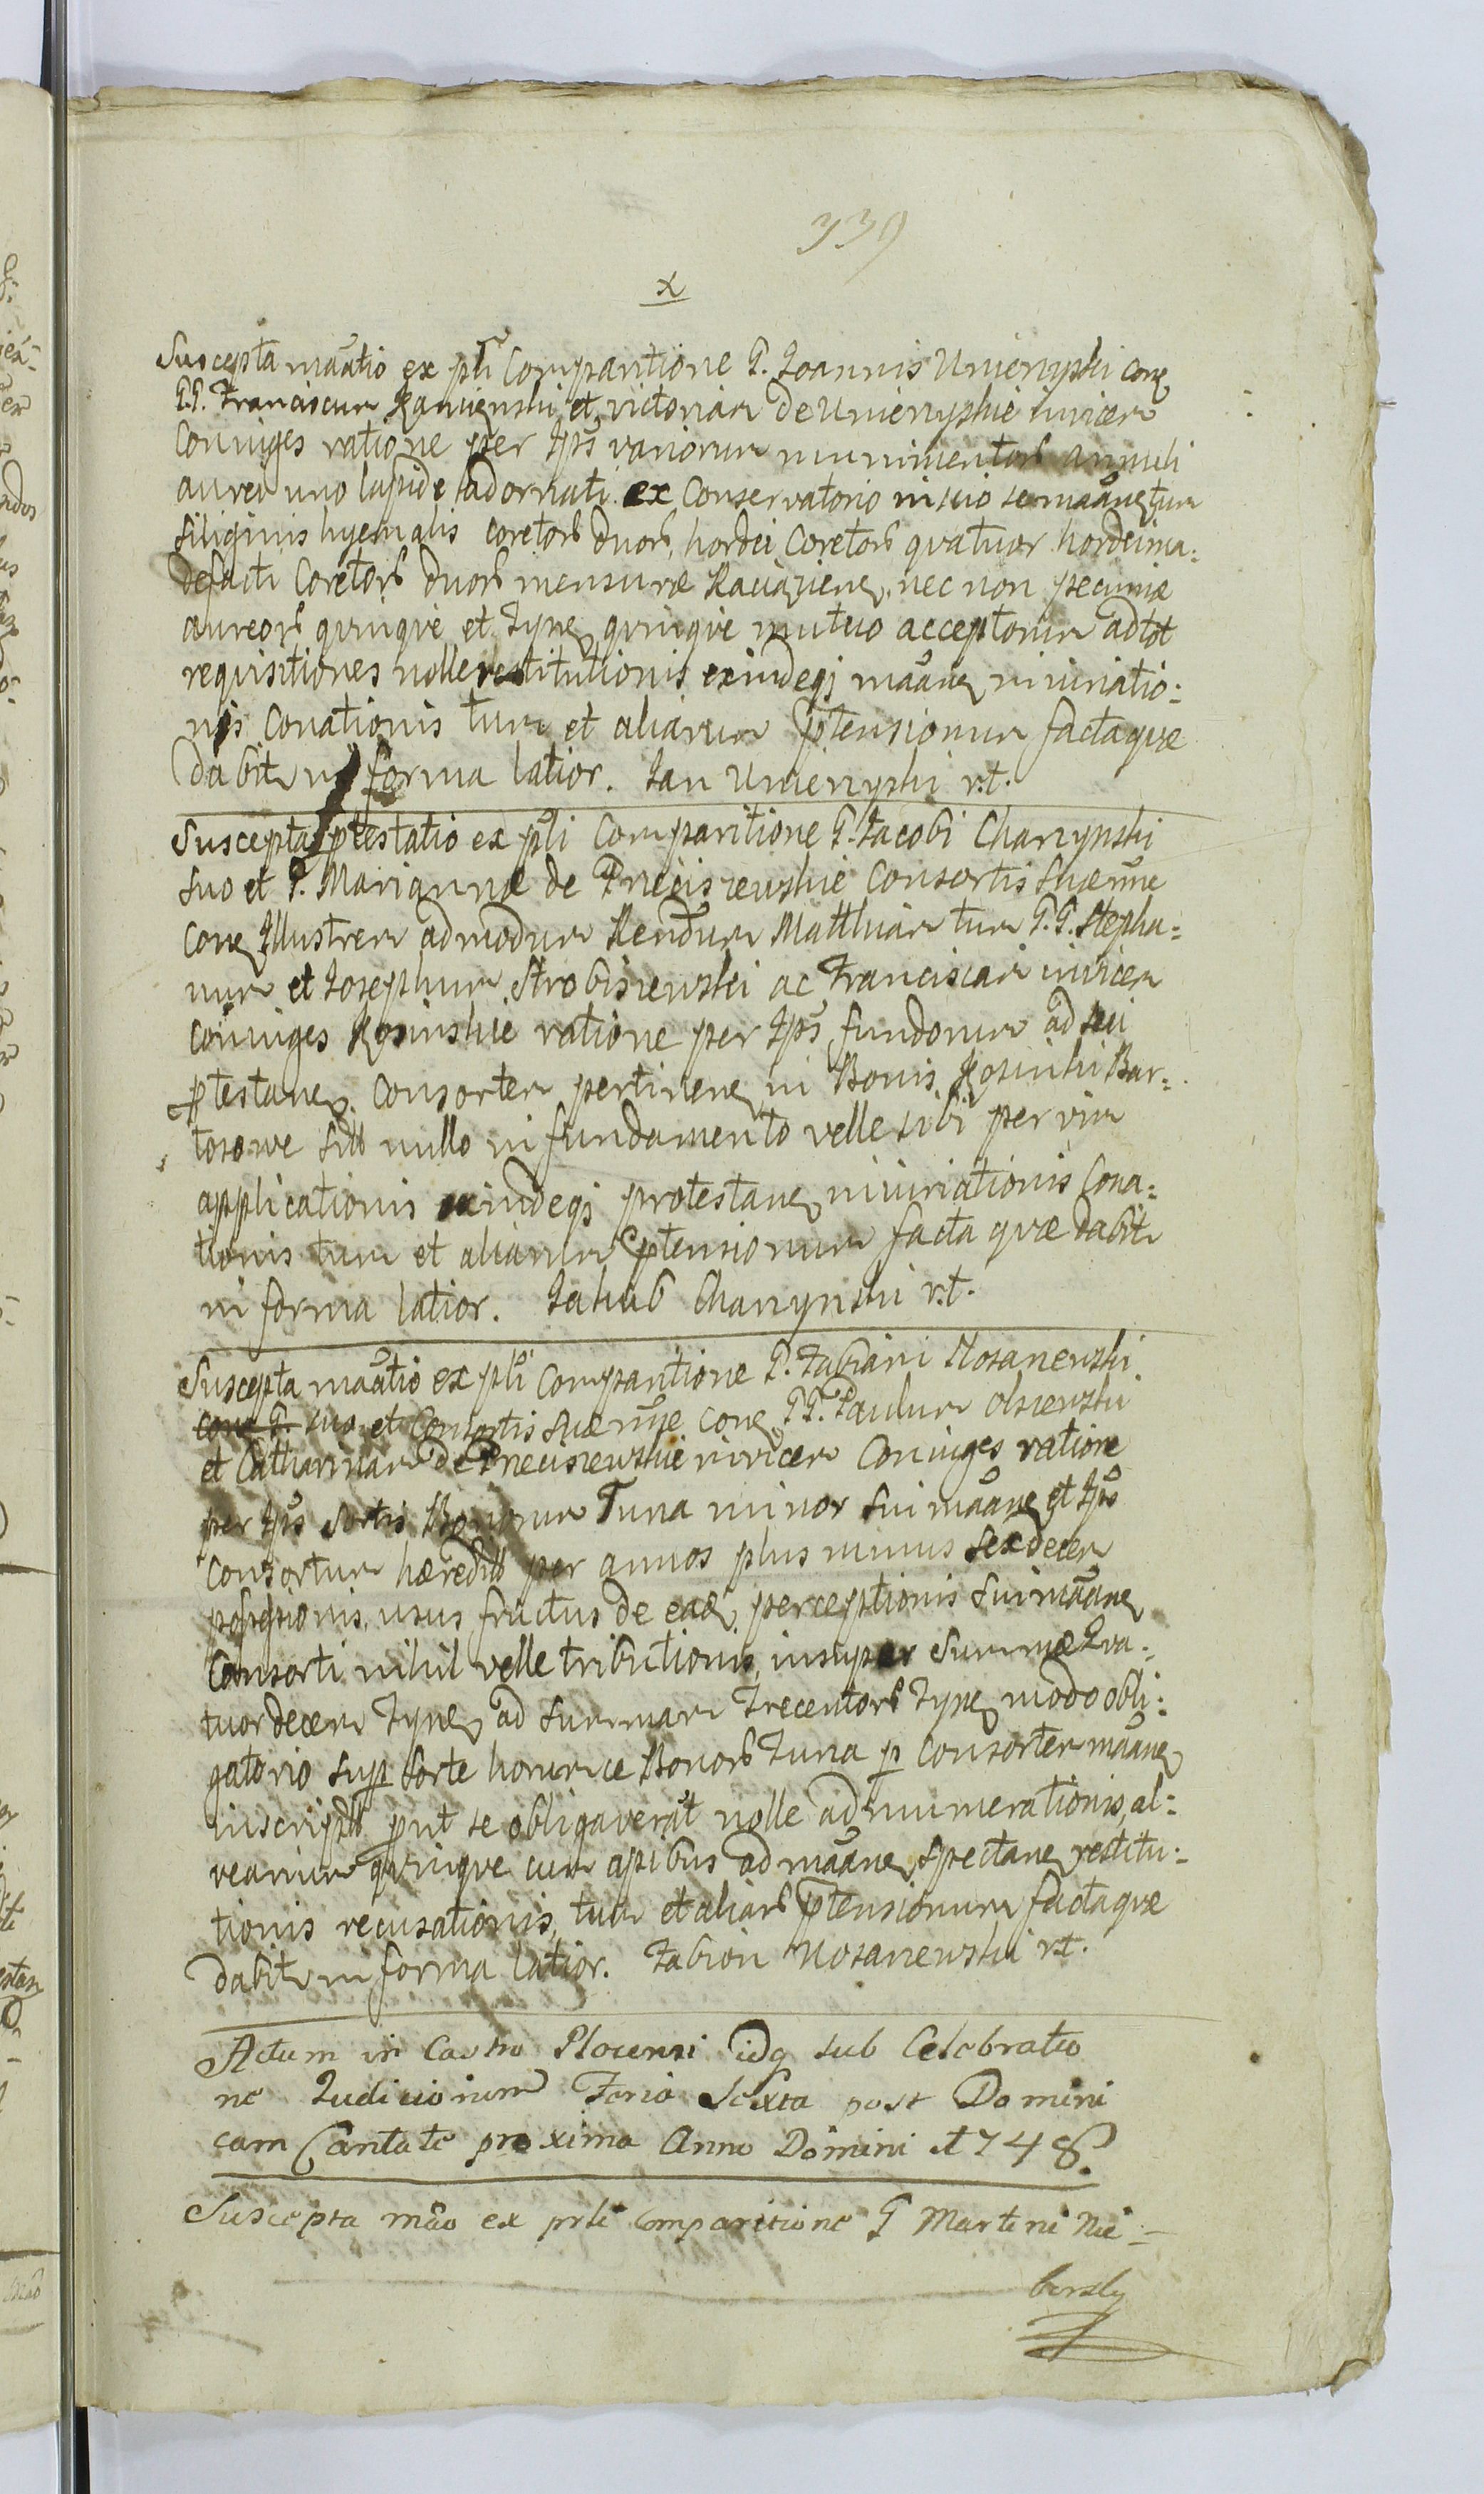 339
x
Suscepta maãtio ex pti Comparitione G. Joannis Umienyski con
G.G. Franciscum Kamienski et victoriam de Umienyskie invicem
Coniuges ratione per Ips variorum munimentorũ annuli
aureo uno lapide adornati ex Conservatorio in suo
siliginis hyemalis coretorũ duorũ, hordei Coretorũ qvatuor hordei ma:
defacti Coretorũ duorũ mensuræ Raciązien, nec non pecuniæ
aureorũ qvinqve et Tynf qvinqve mutuo acceptorum ad tot
requisitiones nolle restitutionis exindeqz maãne iniuriatio:
nis Conationis tum et aliarum ptensionum facta qvæ
dabitr in forma latior. Jan Umienyski r.t.
Suscepta ptestatio ex pti Comparitione G. Jacobi Charzynski
suo et G. Mariannæ de Pnieisiewskie Consortis suæ nne
con Illustrem admodum Rendum Matthiam tum G.G. Stepha:
num et Josephum Strobisiewski ac Franciscam invicem
coniuges Kosinskie ratione per Ips fundorum ad sui
ptestane Consortem pertinen in Bonis Kosinki Bar:
tosowe sitt nullo in fundamento velle sibi per vim
applicationis exindeqz protestane iniuriationis Cona:
tionis tum et aliarum ptensionum facta qvæ dabitr
in forma latior. Jakub Charzynski r.t.
Suscepta maãtio ex pti Comparitione G. Fabiani Nosarzewski
con G. suo et Consortis suæ nne con G.G. Paulum Olszewski
et Catharinam de Pnieisiewskie invicem Coniuges ratione
per Ips Sortis Bonorum Tuna minor sui maãne et Ips
Consortum hæreditt per annos plus minus sexdecem
possessionis, usus fructus de eadẽ perceptionis sui maãne
Consorti nihil velle tributionis, insuper summæ Qva:
tuordecem Tynf ad summam Trecentorũ Tynf modo obli:
gatorio sup sorte horumce Bonorũ Tuna p Consortem maãne
inscriptt put se obligaverãt nolle adnumerationis, al:
vearium qvinqve cum apibus ad maãne spectane restitu:
tionis recusationis, tum et aliarũ ptensionum facta qvæ
dabitr in forma latior. Fabion Nosarzewski r.t.
Actum in Castro Plocensi idq sub Celebratio
ne Judiciorum Feria Sexta post Domini
cam Cantate proxima Anno Domini 1748.
Suscepta mão ex prli comparitione G Martini Nie:
borsky